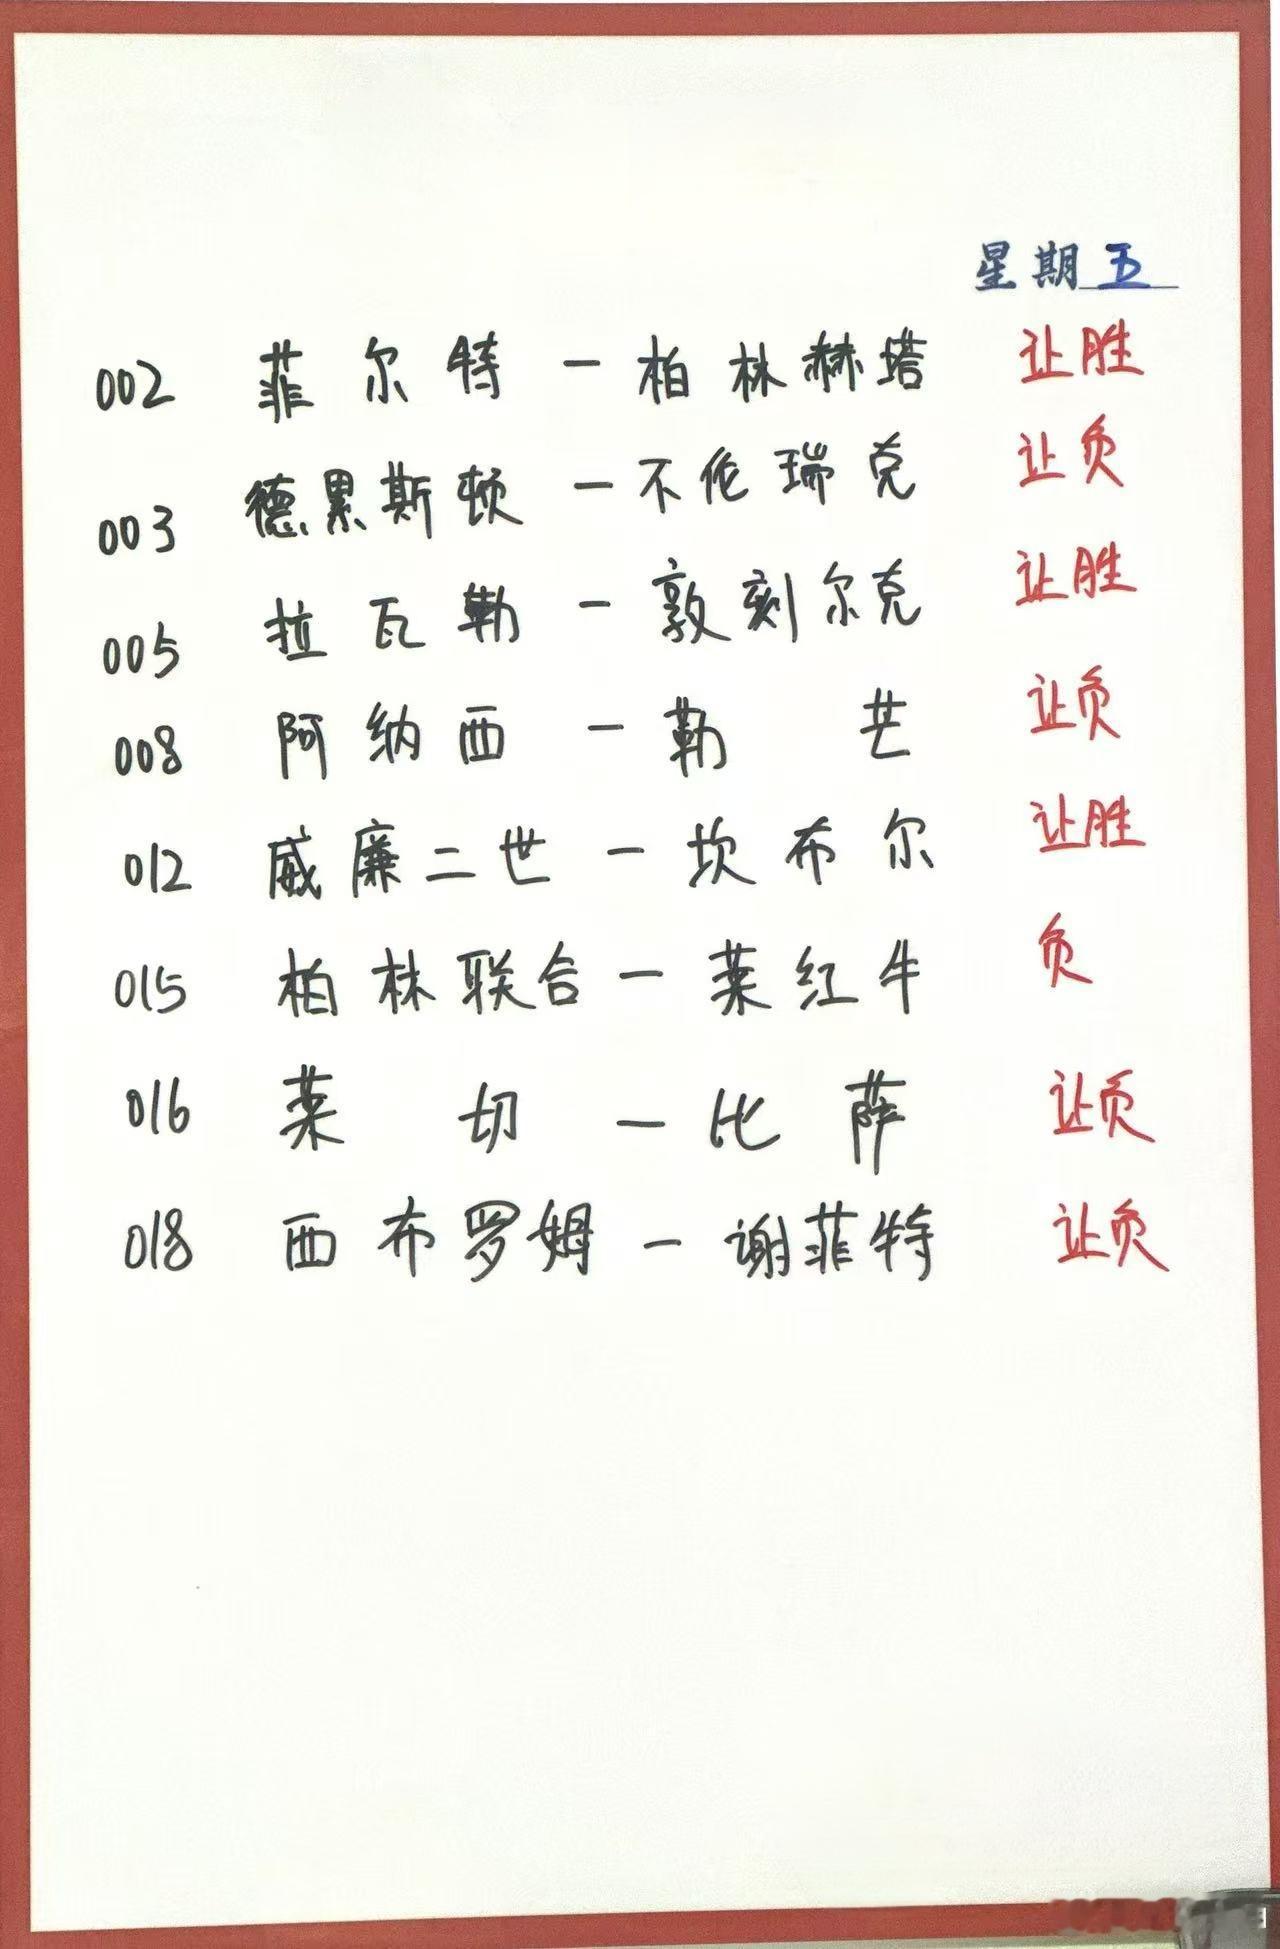 星期五
002 菲尔特－柏林赫塔 让胜
003 德累斯顿－不伦瑞克 让负
005 拉瓦勒－敦刻尔克 让胜
008 阿纳西－勒芒 让负
012 威廉二世－坎布尔 让胜
015 柏林联合－莱红牛 负
016 莱切－比萨 让负
018 西布罗姆－谢菲特 让负